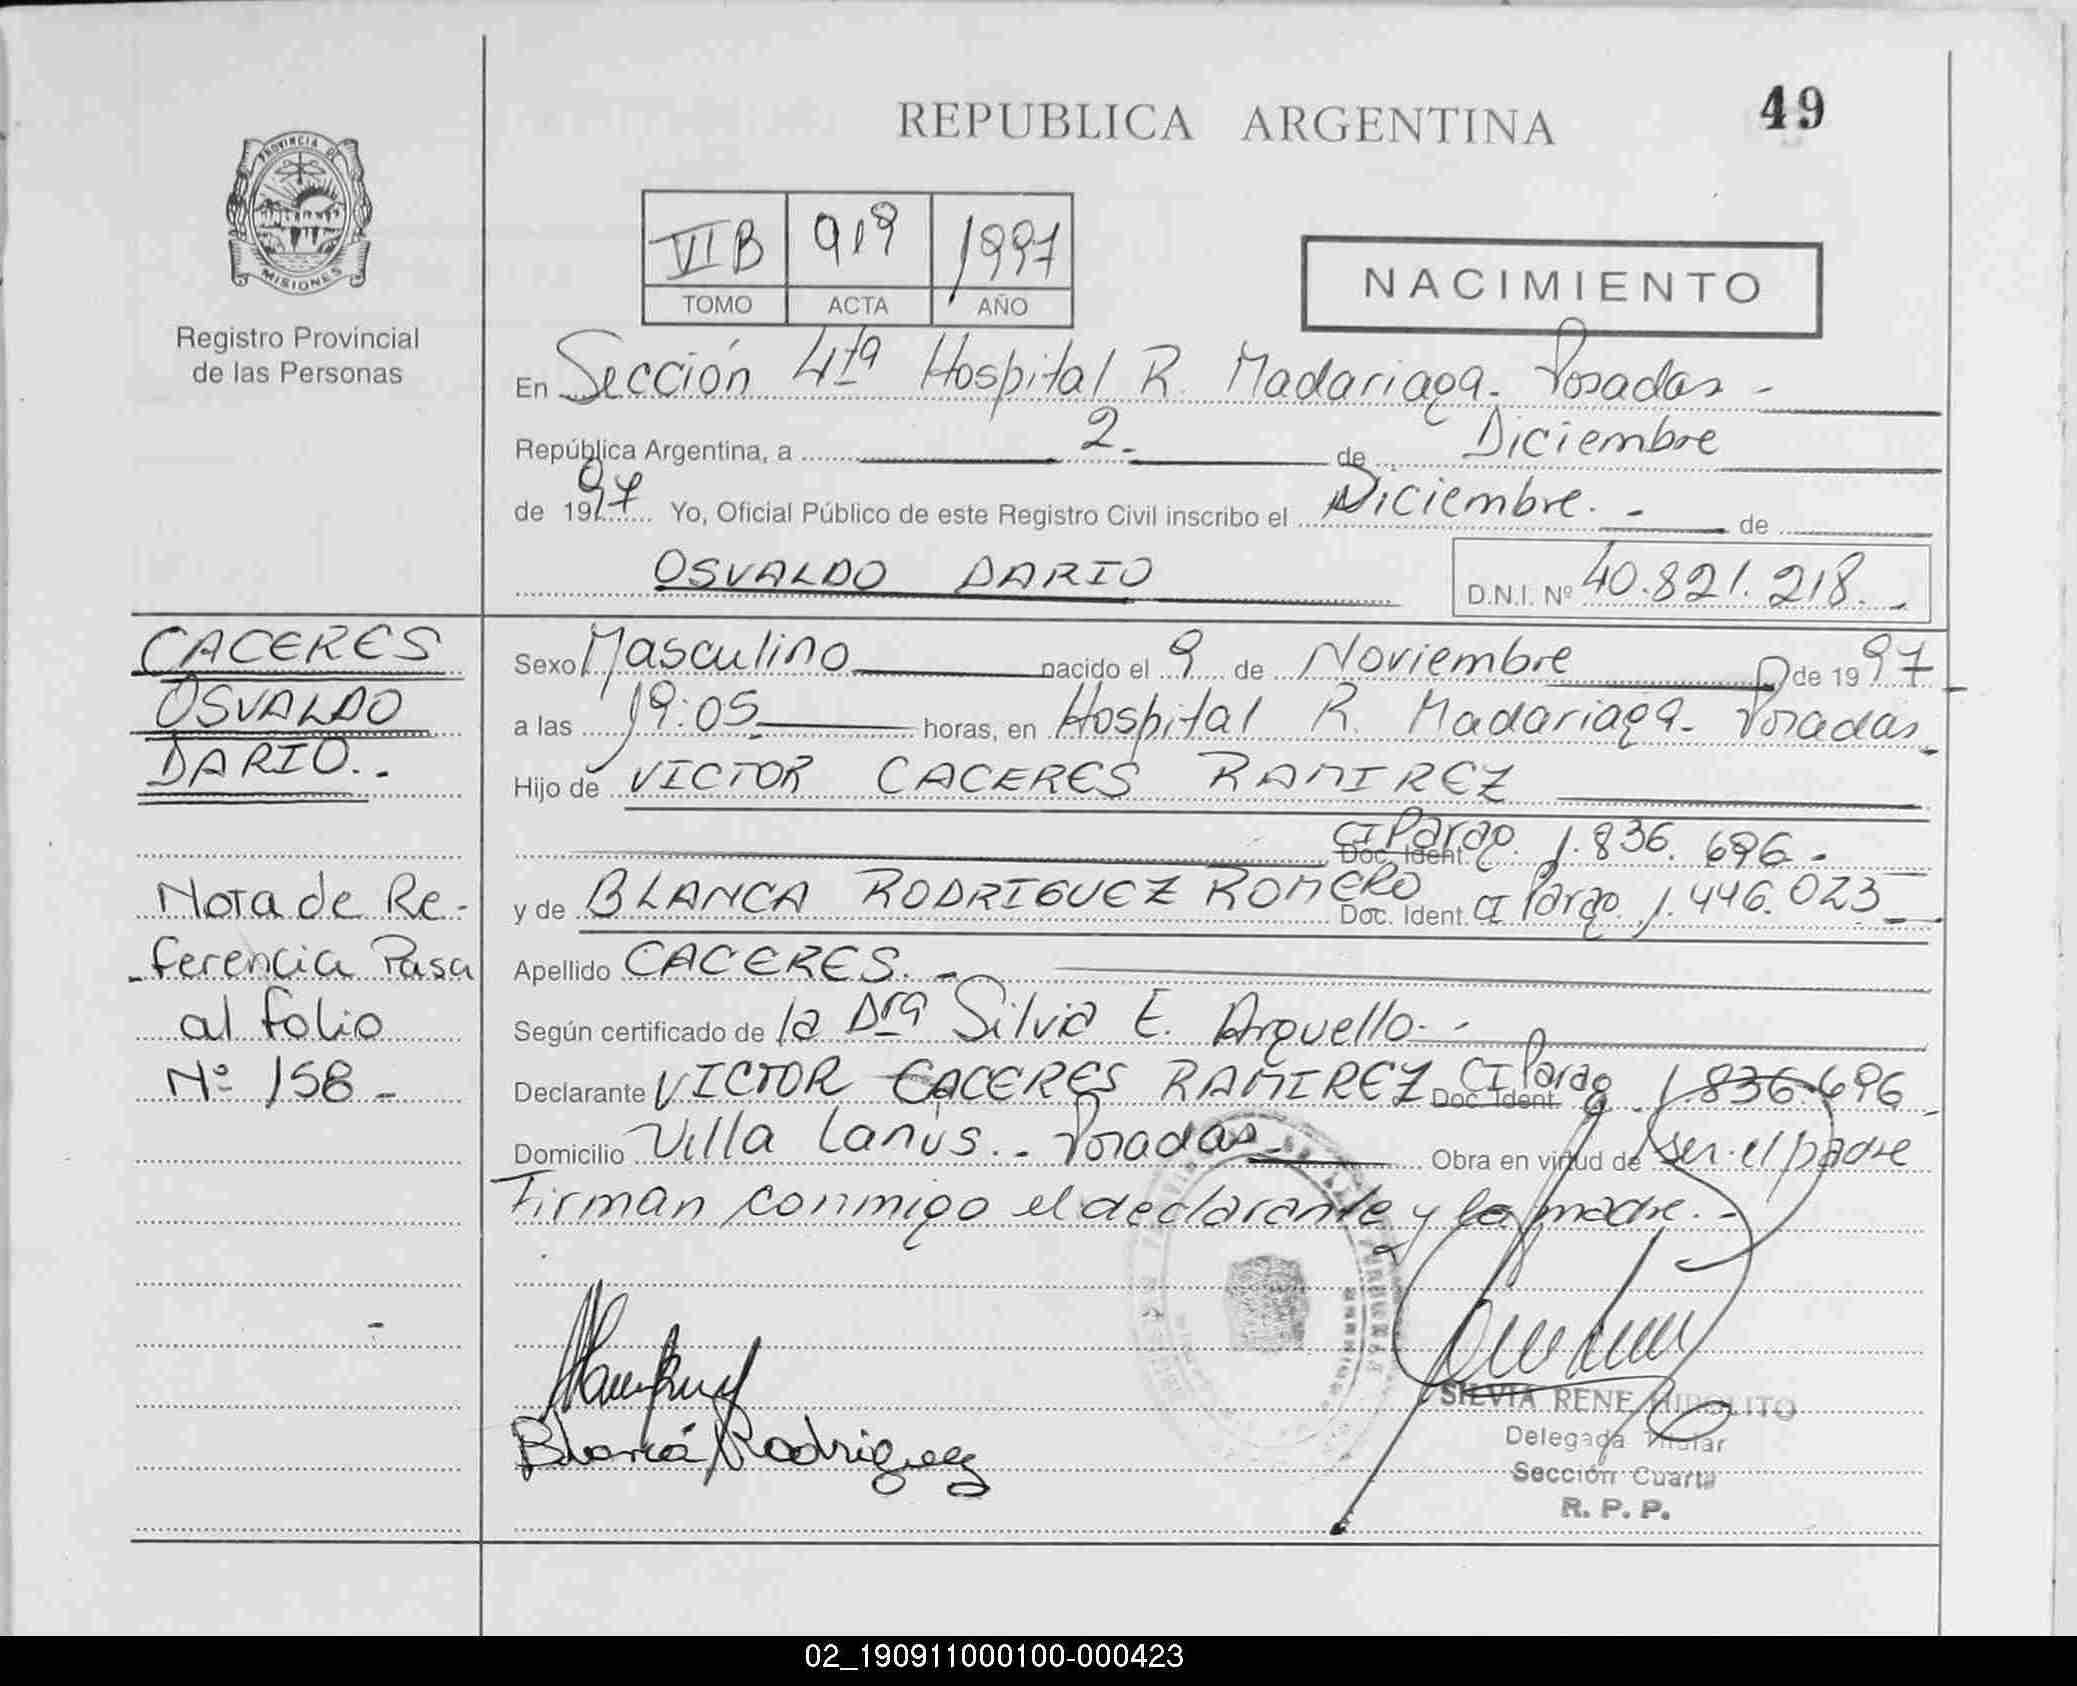 REPUBLICA ARGENTINA
49
PROVINCIA DE
MISIONES
Registro Provincial
de las Personas
VI B 919 1997
TOMO ACTA AÑO
NACIMIENTO
En Sección 4ta Hospital R. Madariaga - Posadas -
República Argentina, a 2 - de Diciembre
de 1997 Yo, Oficial Público de este Registro Civil inscribo el Diciembre. - de
OSVALDO DARIO D.N.I. Nº 40.821.218. -
CACERES
OSVALDO
DARIO. -
Sexo Masculino nacido el 9 de Noviembre de 1997
a las 19:05 horas, en Hospital R. Madariaga - Posadas -
Hijo de VICTOR CACERES RAMIREZ
Doc. Ident. CI Parag. 1.836.696 -
y de BLANCA RODRIGUEZ ROMERO Doc. Ident. CI Parag. 1.446.023 -
Apellido CACERES. -
Según certificado de la Dra Silvia E. Arguello. -
Declarante VICTOR CACERES RAMIREZ Doc. Ident. CI Parag. 1.836.696 -
Domicilio Villa Lanús. - Posadas - Obra en virtud de ser el padre
Firman conmigo el declarante y la madre. -
Nota de Re-
ferencia Pasa
al folio
Nº 158 -
Blanca Rodriguez
SILVIA RENE HIPOLITO
Delegada Titular
Sección Cuarta
R. P. P.
02_190911000100-000423